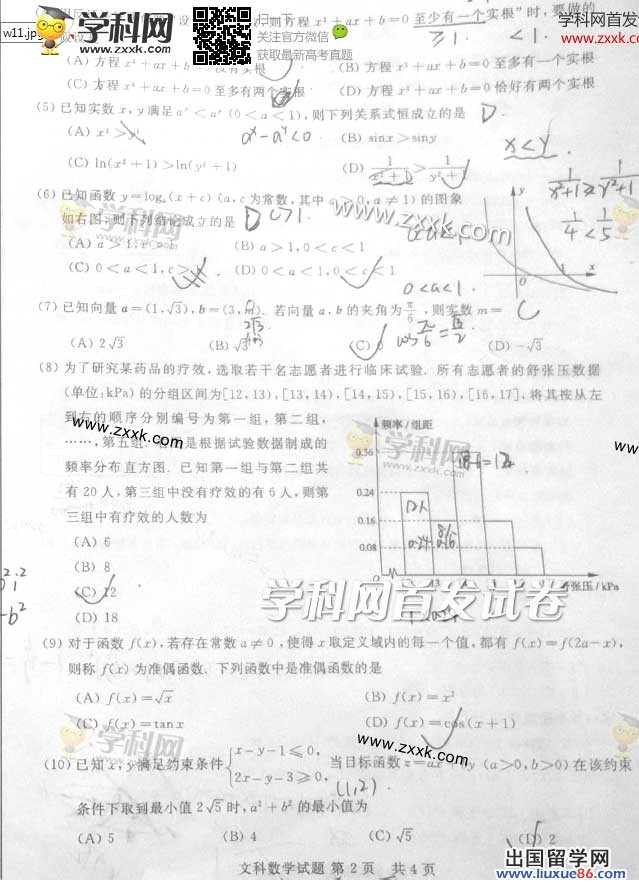 学科网
www.zxxk.com
关注官方微信
获取最新高考真题
学科网
www.zxxk.com
w11.jpg
则方程 x³+ax+b=0 至少有一个实根"时,要做的
≥1. <1.
(A) 方程 x³+ax+b=0 没有实根 (B) 方程 x³+ax+b=0 至多有一个实根
(C) 方程 x³+ax+b=0 至多有两个实根 (D) 方程 x³+ax+b=0 恰好有两个实根
(5) 已知实数 x,y 满足 aˣ<aʸ (0<a<1),则下列关系式恒成立的是 D
(A) x³>y³ (B) sinx>siny
aˣ-aʸ<0 x<y
(C) ln(x²+1)>ln(y²+1) (D) 1/(x²+1)>1/(y²+1)
1/4<1/5
(6) 已知函数 y=logₐ(x+c) (a,c为常数,其中 a>0,a≠1) 的图象
如右图,则下列结论成立的是 D c>1.
(A) a>1,c>1 (B) a>1,0<c<1
(C) 0<a<1,c>1 (D) 0<a<1,0<c<1
0<a<1.
y
O
x
(7) 已知向量 a=(1,√3),b=(3,m). 若向量 a,b 的夹角为 π/6 ,则实数 m= C
(A) 2√3 (B) √3 (C) 0 (D) -√3
cos π/6=√3/2
(8) 为了研究某药品的疗效,选取若干名志愿者进行临床试验. 所有志愿者的舒张压数据
(单位:kPa) 的分组区间为[12,13),[13,14),[14,15),[15,16),[16,17],将其按从左
到右的顺序分别编号为第一组,第二组,
……,第五组. 右图是根据试验数据制成的
频率分布直方图. 已知第一组与第二组共
有 20 人,第三组中没有疗效的有 6 人,则第
三组中有疗效的人数为
(A) 6
(B) 8
(C) 12
(D) 18
频率/组距
0.36
0.24
0.16
0.08
0
舒张压/kPa
18-6=12
12人
0.24
0.16
学科网
www.zxxk.com
学科网首发试卷
(9) 对于函数 f(x),若存在常数 a≠0 ,使得 x 取定义域内的每一个值,都有 f(x)=f(2a-x),
则称 f(x) 为准偶函数、下列函数中是准偶函数的是
(A) f(x)=√x (B) f(x)=x²
(C) f(x)=tanx (D) f(x)=cos(x+1)
(10) 已知 x,y 满足约束条件 { x-y-1≤0, 2x-y-3≥0, 当目标函数 z=ax+by (a>0,b>0) 在该约束
条件下取到最小值 2√5 时,a²+b² 的最小值为
(A) 5 (B) 4 (C) √5 (D) 2
文科数学试题 第 2 页 共 4 页
出国留学网
www.liuxue86.com